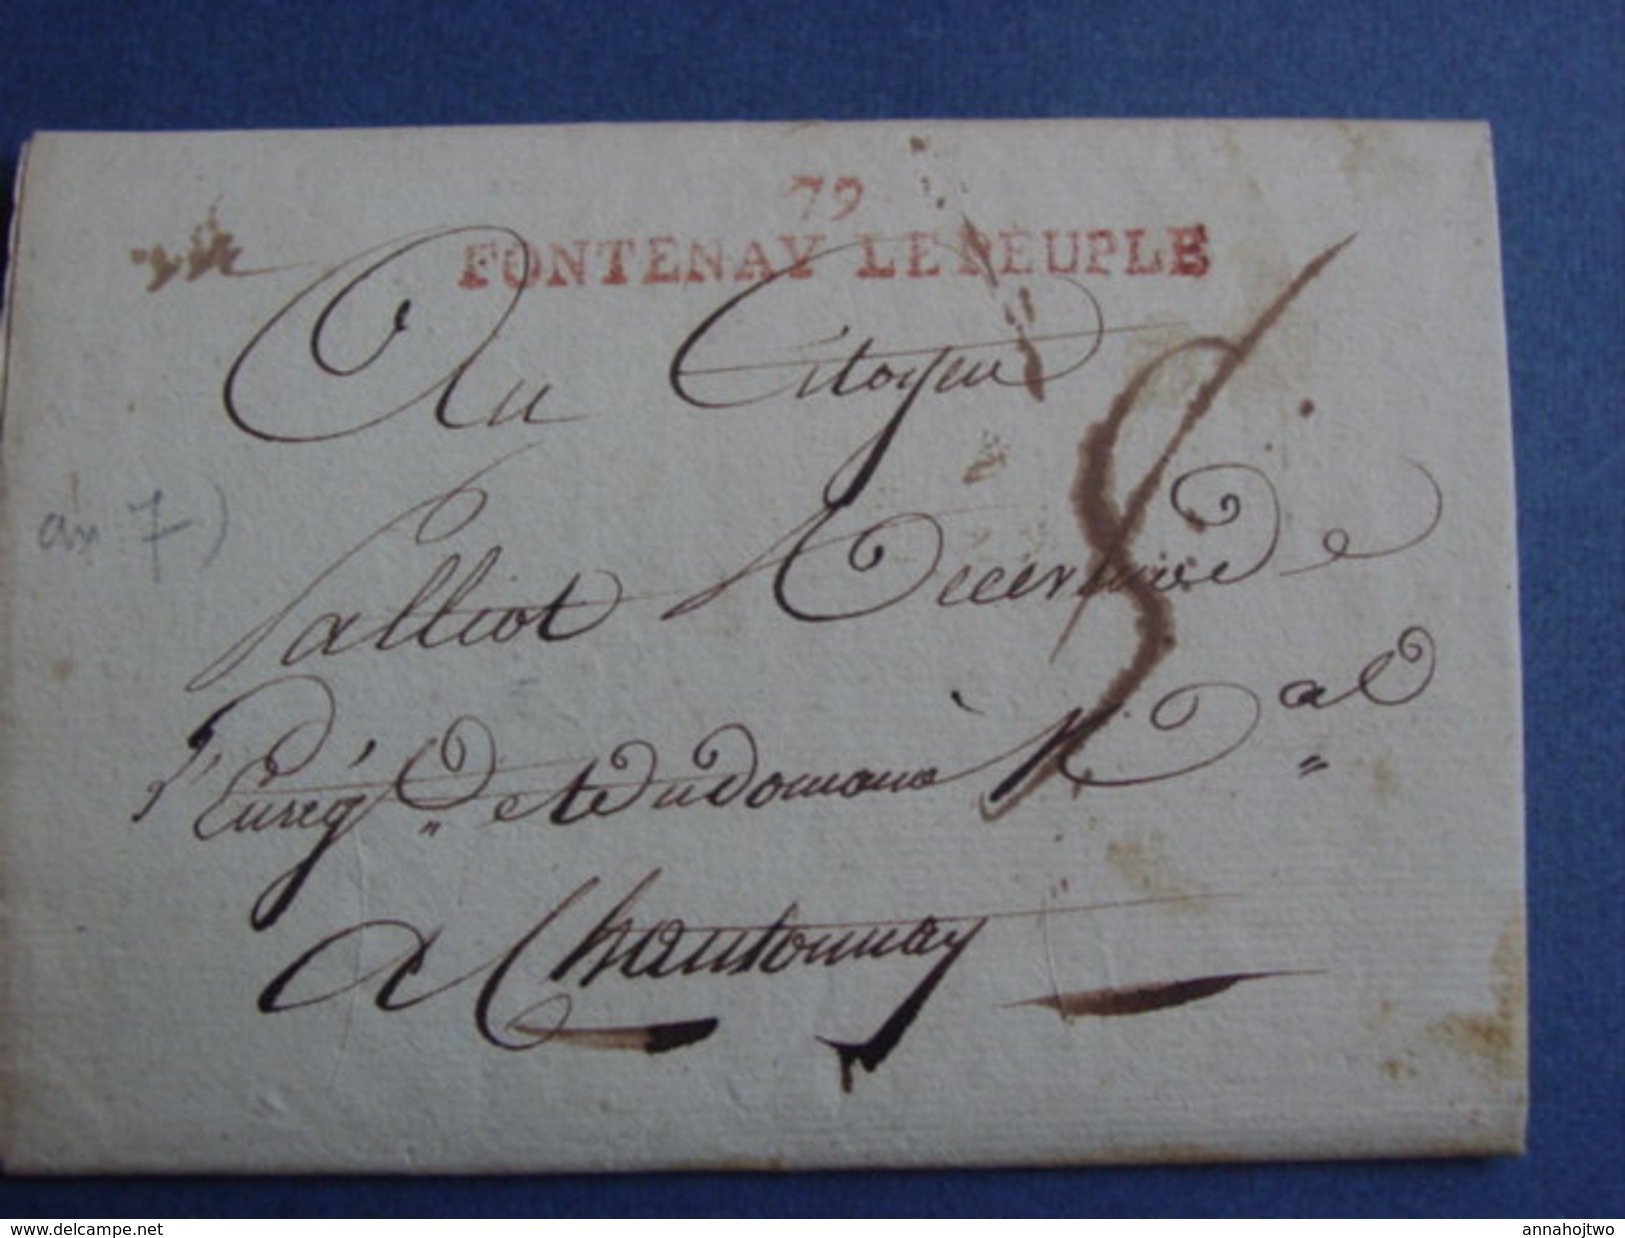 79
FONTENAY LE PEUPLE
Au Citoyen
an 7)
Palliot Receveur de
l'Enreg et du domaine N al
a Chantonnay
delcampe.net
annahojtwo